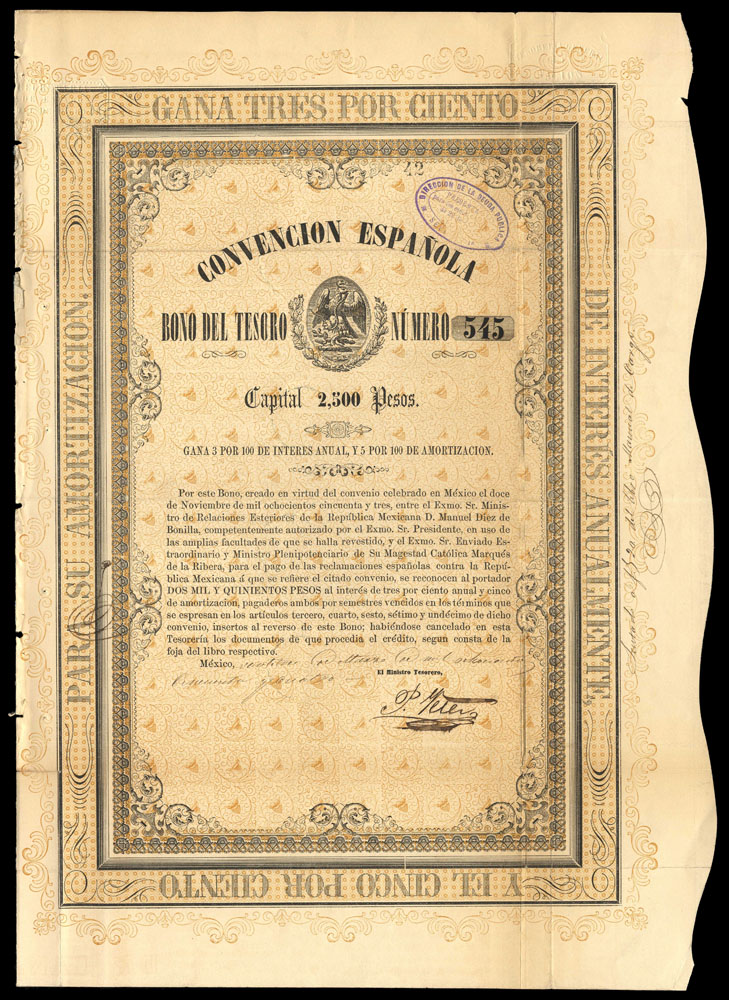 GANA TRES POR CIENTO
DE INTERÉS ANUALMENTE,
Y EL CINCO POR CIENTO
PARA SU AMORTIZACION.
42
DIRECCION DE LA DEUDA PUBLICA
CONVENCION ESPAÑOLA
BONO DEL TESORO NÚMERO 545
Capital 2,500 Pesos.
GANA 3 POR 100 DE INTERES ANUAL, Y 5 POR 100 DE AMORTIZACION.
Por este Bono, creado en virtud del convenio celebrado en México el doce
de Noviembre de mil ochocientos cincuenta y tres, entre el Exmo. Sr. Minis-
tro de Relaciones Esteriores de la República Mexicana D. Manuel Diez de
Bonilla, competentemente autorizado por el Exmo. Sr. Presidente, en uso de
las amplias facultades de que se halla revestido, y el Exmo. Sr. Enviado Es-
traordinario y Ministro Plenipotenciario de Su Magestad Católica Marqués
de la Ribera, para el pago de las reclamaciones españolas contra la Repú-
blica Mexicana á que se refiere el citado convenio, se reconocen al portador
DOS MIL Y QUINIENTOS PESOS al interés de tres por ciento anual y cinco
de amortizacion, pagaderos ambos por semestres vencidos en los términos que
se espresan en los artículos tercero, cuarto, sesto, sétimo y undécimo de dicho
convenio, insertos al reverso de este Bono; habiéndose cancelado en esta
Tesorería los documentos de que procedia el crédito, segun consta de la
foja del libro respectivo.
México,
cincuenta y cuatro
El Ministro Tesorero,